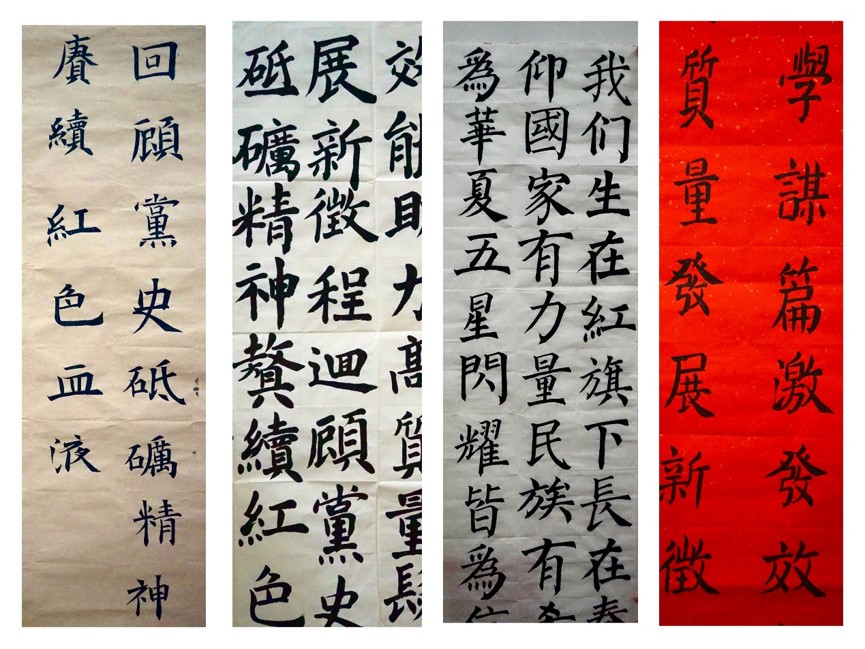 回顧黨史砥礪精神
賡續紅色血液
效能助力高質量
展新徵程迴顧黨史
砥礪精神贅續紅色
我们生在紅旗下長在春
仰國家有力量民族有希
爲華夏五星閃耀皆爲信
學謀篇激發效
質量發展新徵